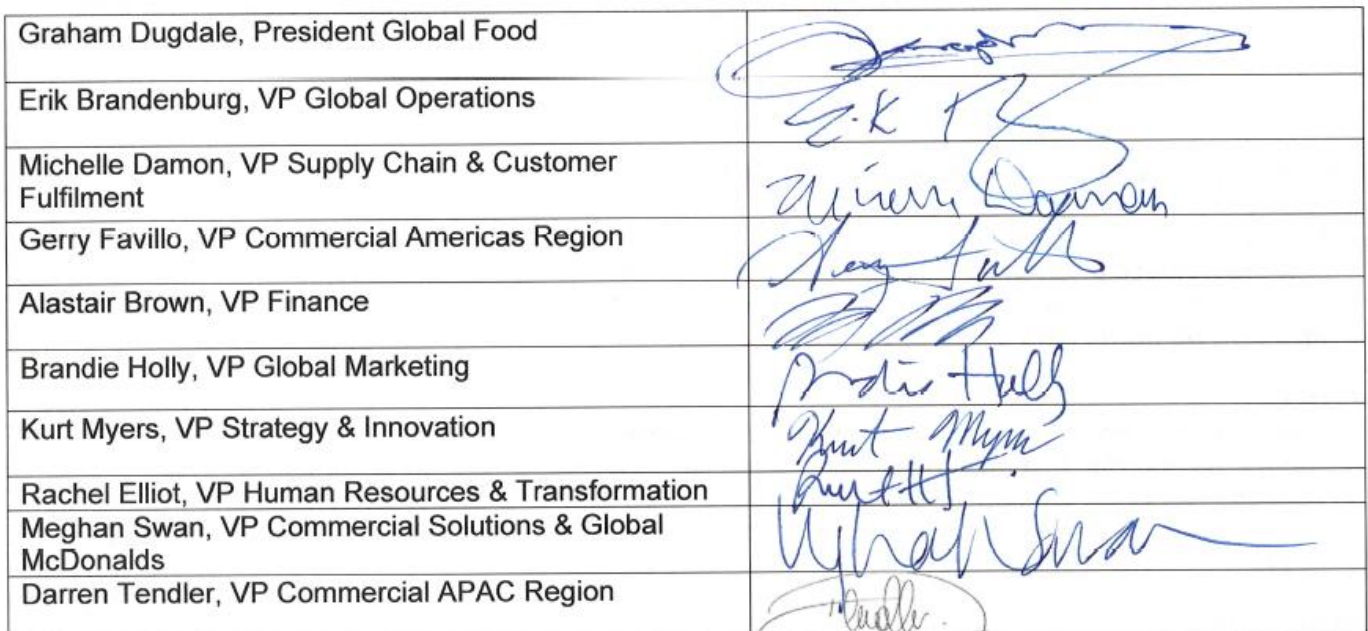 Graham Dugdale, President Global Food
Erik Brandenburg, VP Global Operations
Michelle Damon, VP Supply Chain & Customer
Fulfilment
Gerry Favillo, VP Commercial Americas Region
Alastair Brown, VP Finance
Brandie Holly, VP Global Marketing
Kurt Myers, VP Strategy & Innovation
Kurt Myers
Rachel Elliot, VP Human Resources & Transformation
Meghan Swan, VP Commercial Solutions & Global
McDonalds
Swan
Darren Tendler, VP Commercial APAC Region